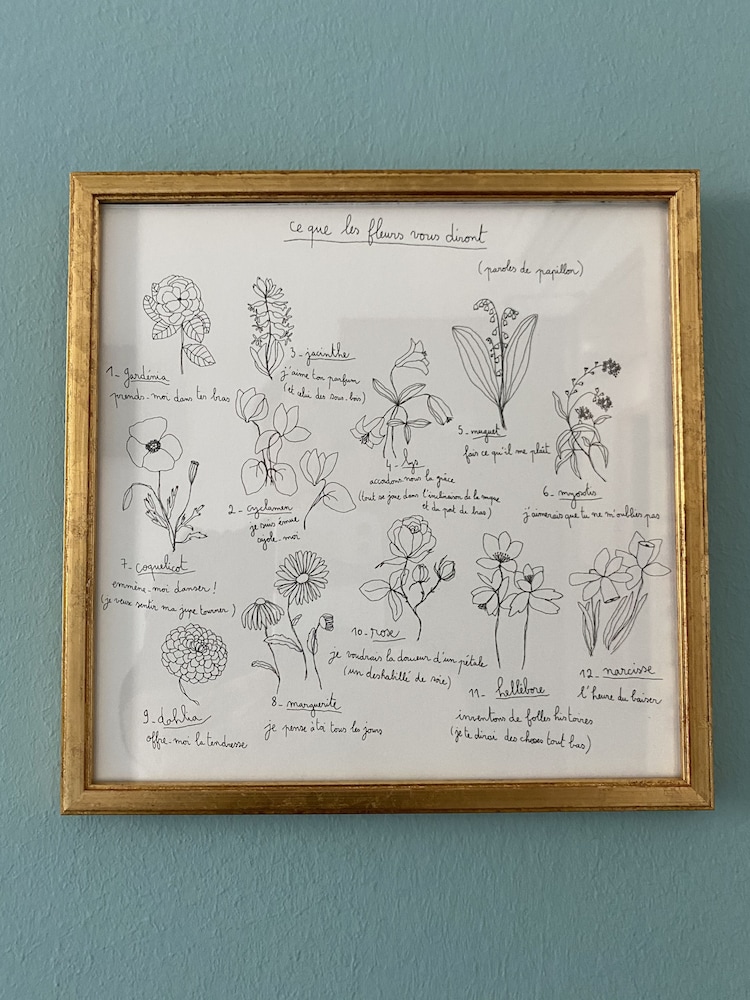 ce que les fleurs vous diront
(paroles de papillon)
1- gardénia
prends-moi dans tes bras
2- cyclamen
je suis émue
cajole-moi
3- jacinthe
j'aime ton parfum
(et celui des sous-bois)
4- lys
accordons nous la grâce
(tout se joue dans l'inclinaison de la nuque
et du port de bras)
5- muguet
fais ce qu'il me plaît
6- myosotis
j'aimerais que tu ne m'oublies pas
7- coquelicot
emmène-moi danser !
(je veux sentir ma jupe tourner)
8- marguerite
je pense à toi tous les jours
9- dahlia
offre-moi la tendresse
10- rose
je voudrais la douceur d'un pétale
(un deshabillé de soie)
11- hellébore
inventons de folles histoires
(je te dirai des choses tout bas)
12- narcisse
l'heure du baiser